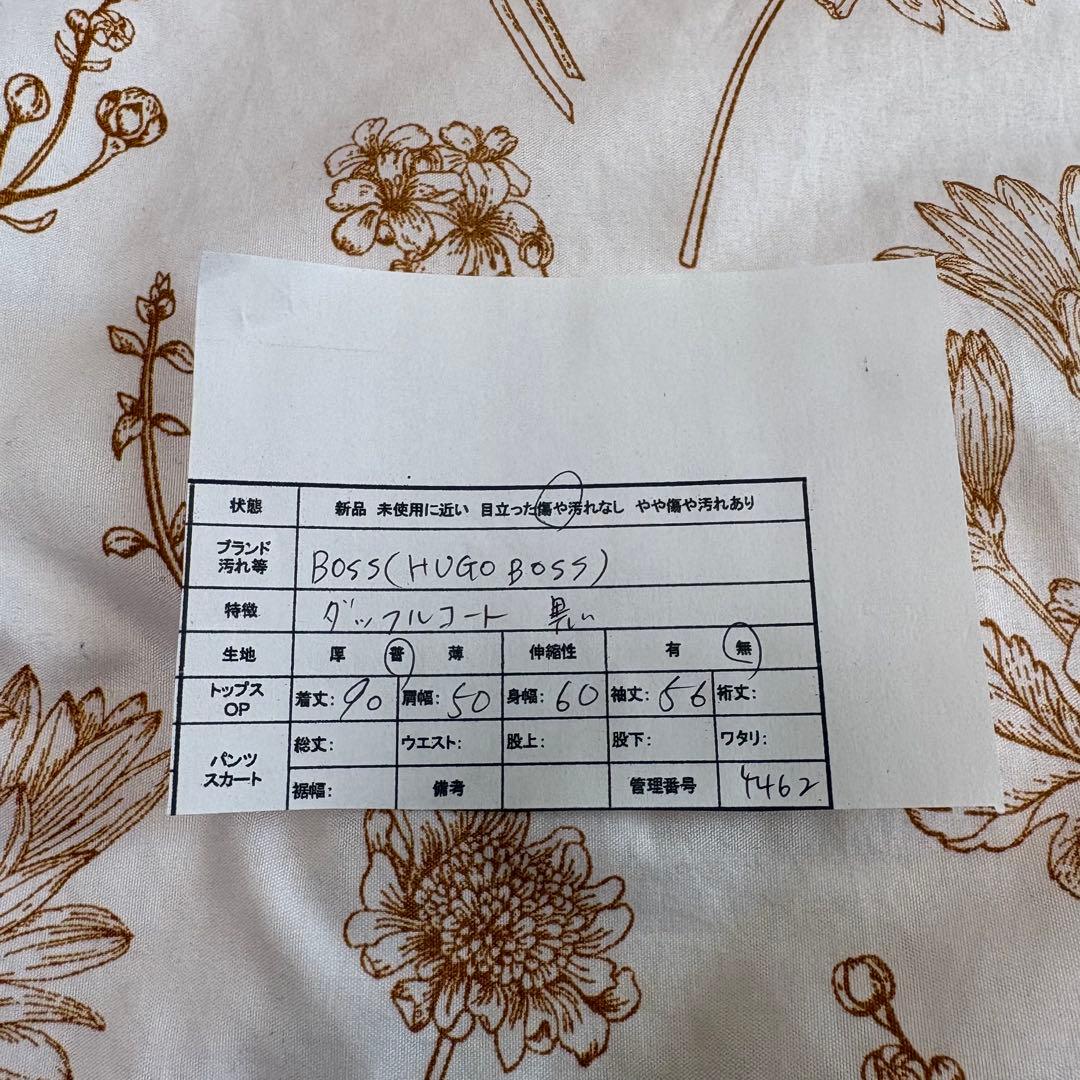 状態 新品 未使用に近い 目立った傷や汚れなし やや傷や汚れあり
ブランド
汚れ等 BOSS(HUGO BOSS)
特徴 ダッフルコート
生地 厚 普 薄 伸縮性 有 無
トップス
OP 着丈: 90 肩幅: 50 身幅: 60 袖丈: 56 裄丈:
パンツ
スカート 総丈: ウエスト: 股上: 股下: ワタリ:
裾幅: 備考 管理番号 4462